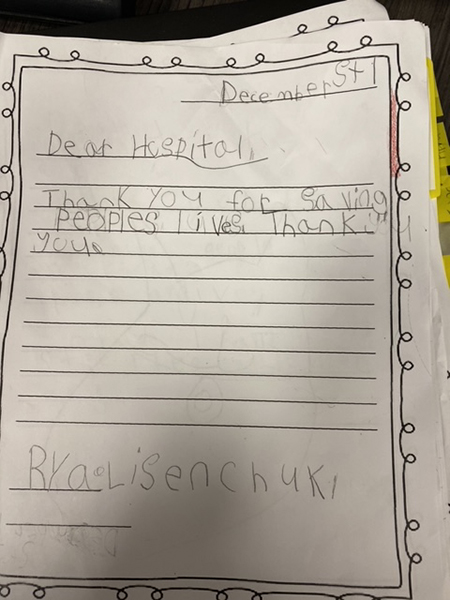 December 5+1
Dear Hospital,
Thank you for saving
peoples lives. Thank
you.
Rya Lisenchuk